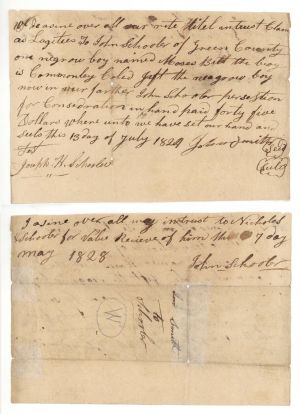 We doasine over all our rite Titel intrust Clam
as Legitees To John Schooler of Greesn County
one negrow boy named Moses Bett the boy
is Commonley Coled Jeft the neagrow boy
now in our farther John Schooler persestion
for Consideration in hand paid forty five
Dollars where unto we have set our hand and
seels this 13 day of July 1824 John Smith Seel
Test Seele
Joseph H. Schooler
I asine over all my intrust to Nicholas
Schooler for Value Recieve of him this 7 day
may 1828
John Schooler
Smith
to
Schooler
W